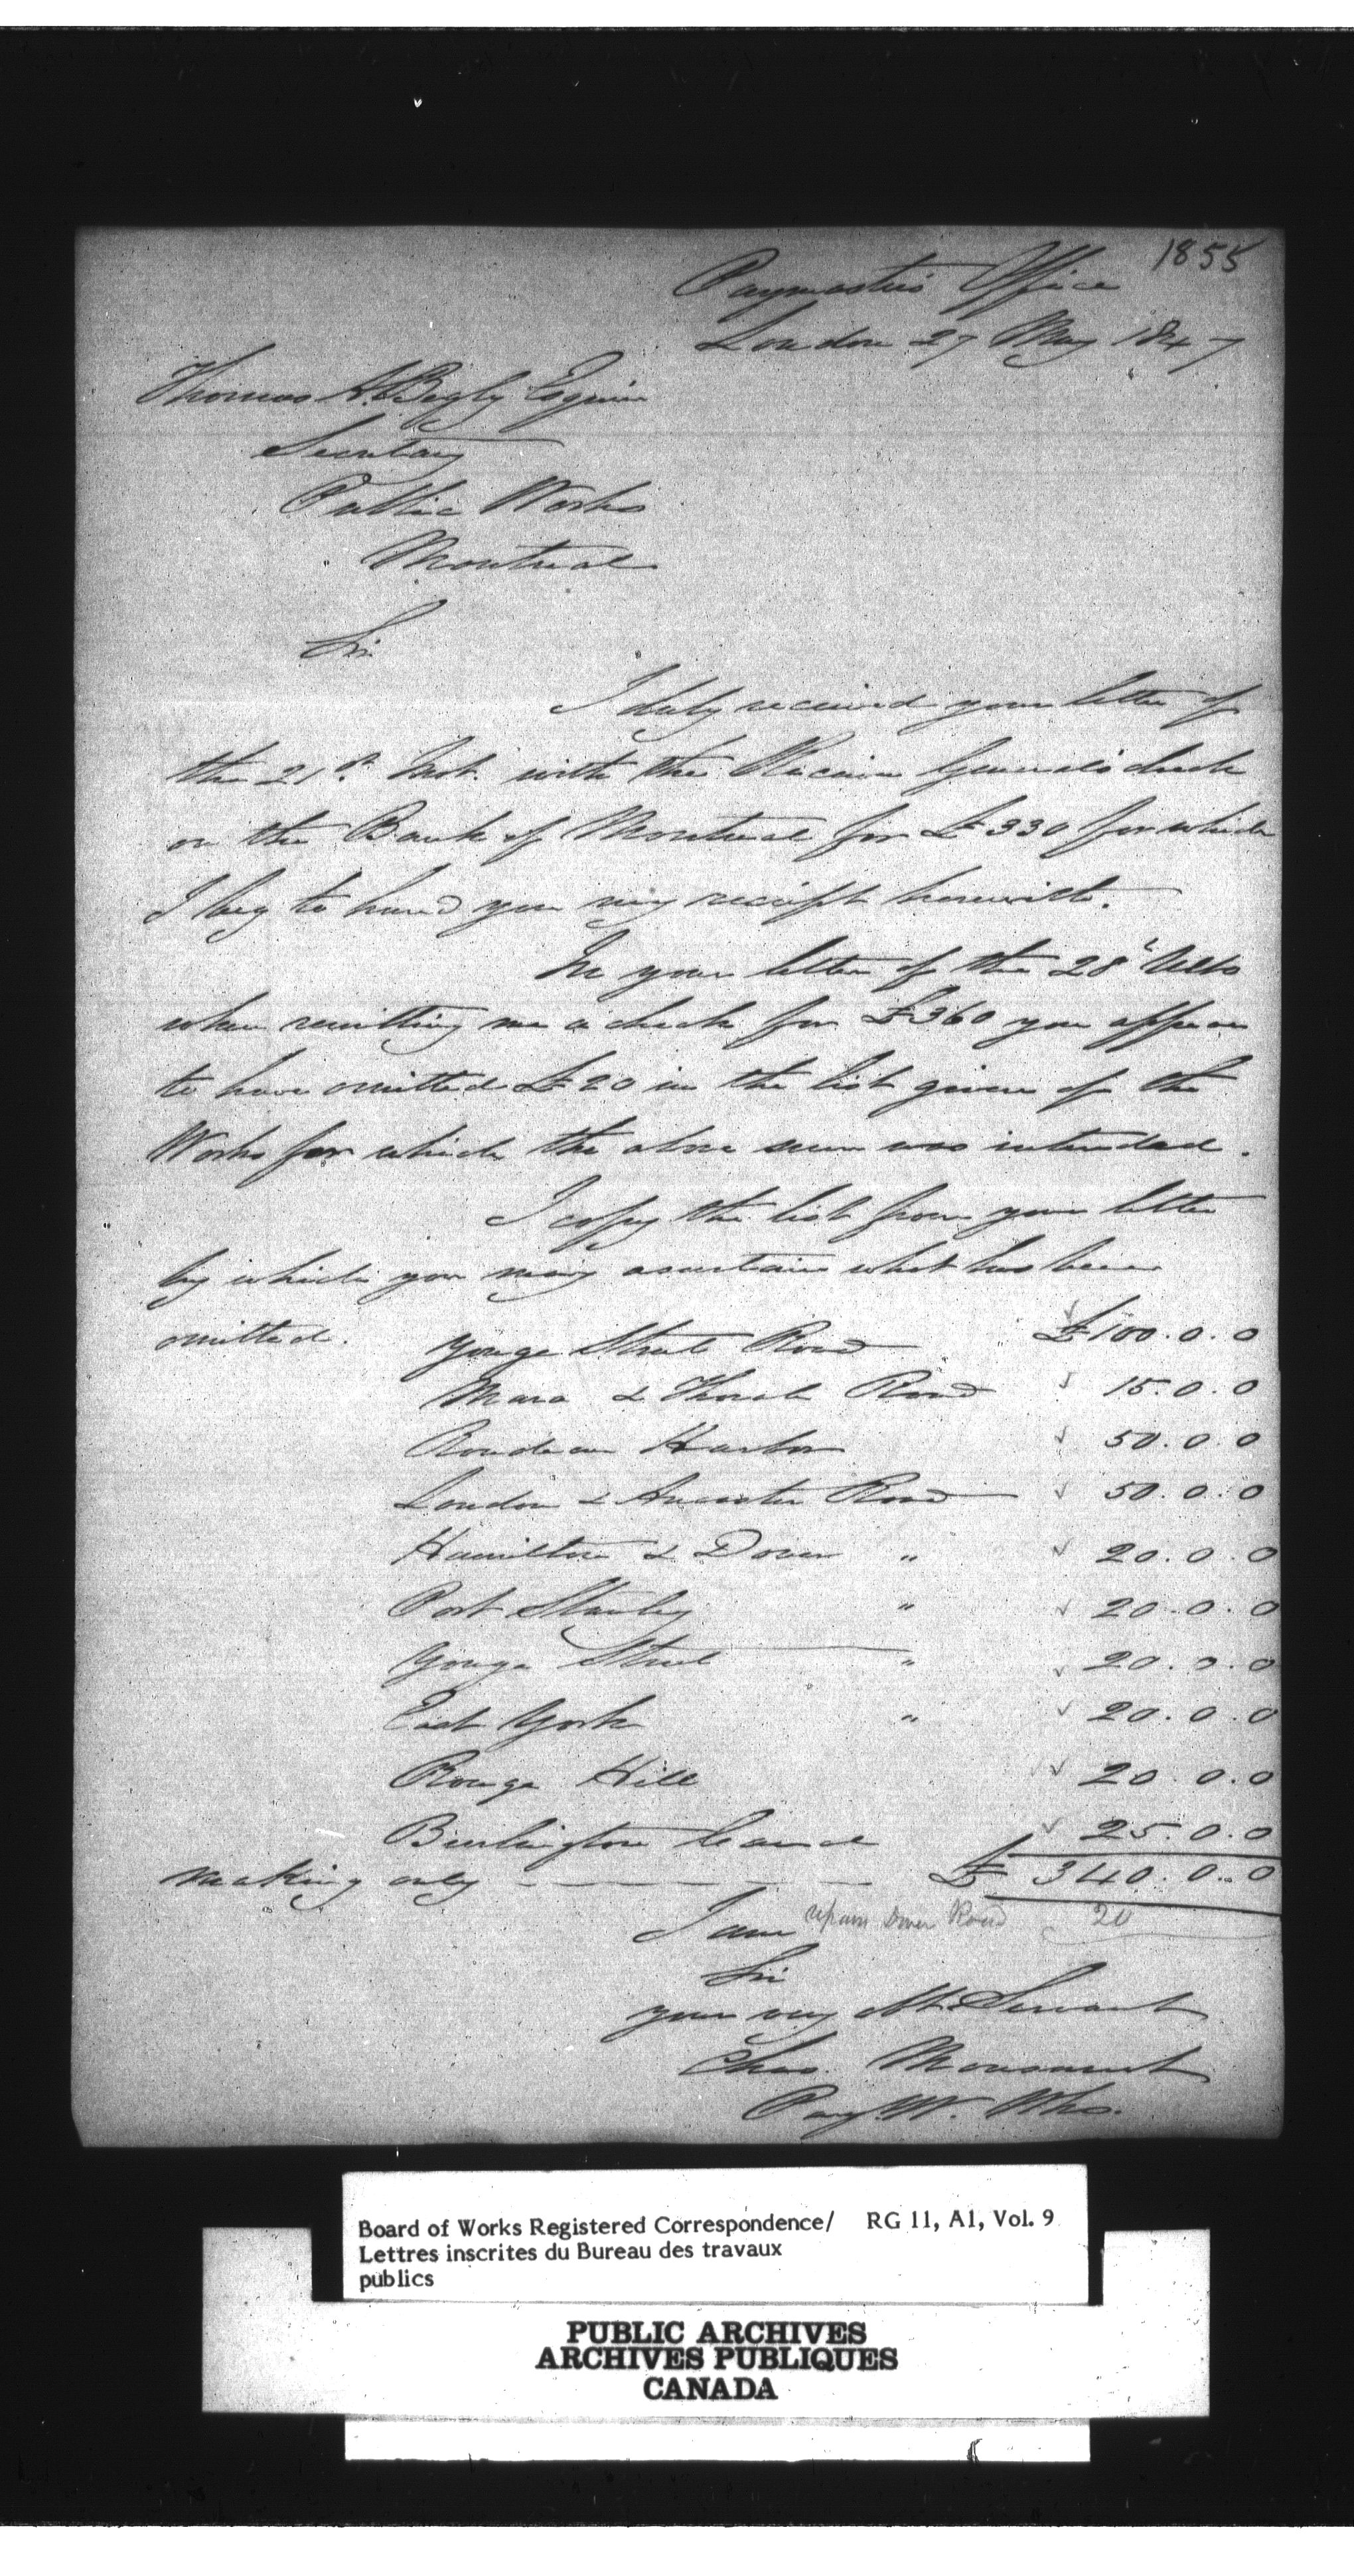 1855
Paymasters Office
London 27 May 1847
Thomas A. Begly Esquire
Secretary
Public Works
Montreal
Sir
I duly received your letter of
the 21st Inst. with the Receiver General's check
on the Bank of Montreal for £330 for which
I beg to hand you my receipt herewith.
In your letter of the 28th Ulto
when remitting me a check for £360 you appear
to have omitted £20 in the list given of the
Works for which the above sum was intended.
I copy the list from your letter
by which you may ascertain what has been
omitted. Yonge Street Road £100.0.0
Mara & Thorah Road 15.0.0
Rondeau Harbor 50.0.0
London & Ancaster Road 50.0.0
Hamilton & Dover " 20.0.0
Port Stanley " 20.0.0
Yonge Street " 20.0.0
East York " 20.0.0
Rouge Hill 20.0.0
Burlington Canal 25.0.0
making only £340.0.0
Dover Road 20
I am
Sir
your very Obt. Servant
Chas. Monsarrat
Paymr. Wks.
Board of Works Registered Correspondence/ RG 11, A1, Vol. 9
Lettres inscrites du Bureau des travaux
publics
PUBLIC ARCHIVES
ARCHIVES PUBLIQUES
CANADA